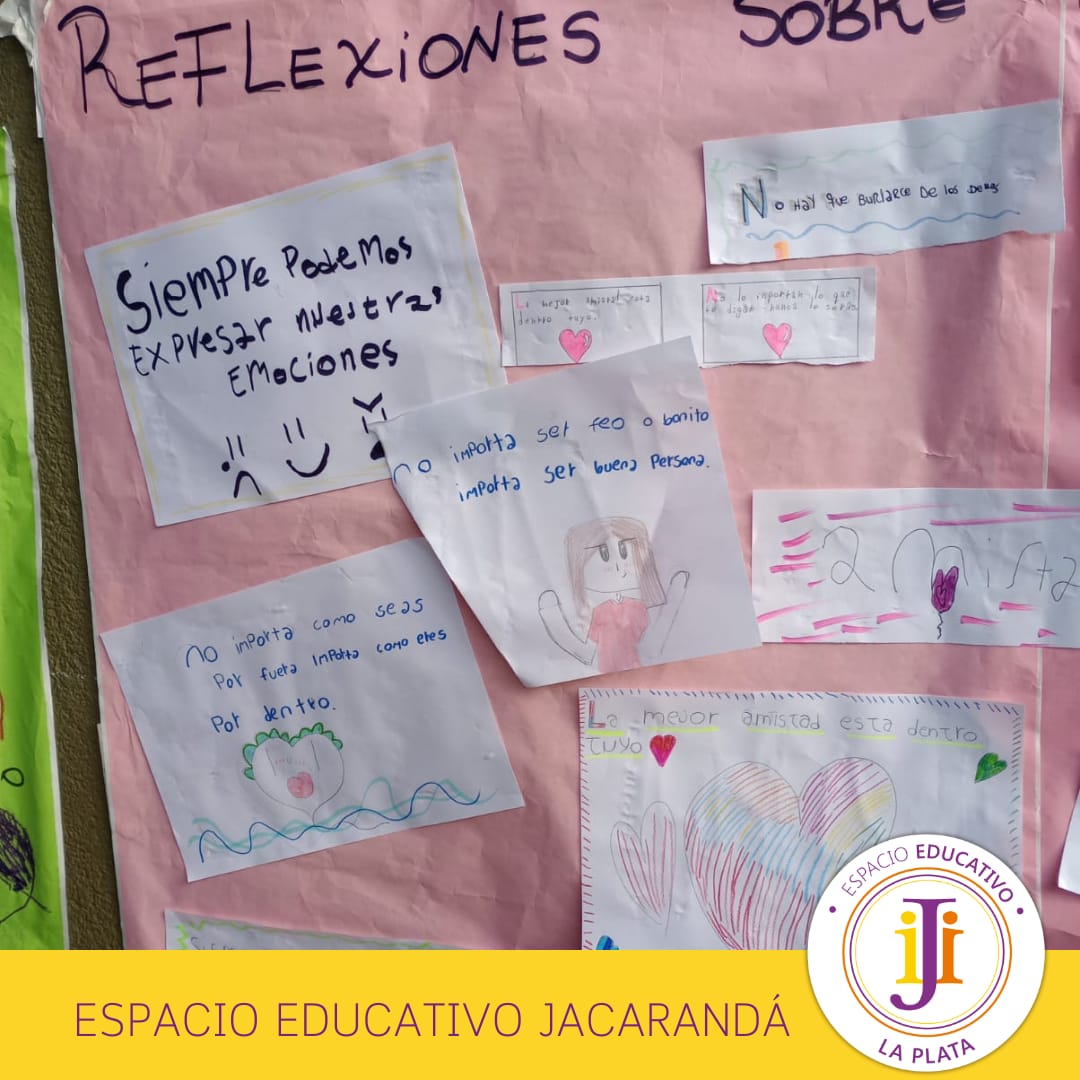 REFLEXIONES SOBRE
No HAY que BURLARCE De los Demas
SIEMPRE PODEMOS
EXPRESAR NUESTRAS
EMOCIONES
La mejor amistad esta
dentro tuyo.
No le importan lo que
te digan
no importa ser feo o bonito
importa ser buena persona.
amista
no importa como seas
Por fuera importa como eres
Por dentro.
La mejor amistad esta dentro
tuyo
ESPACIO EDUCATIVO
LA PLATA
ESPACIO EDUCATIVO JACARANDÁ